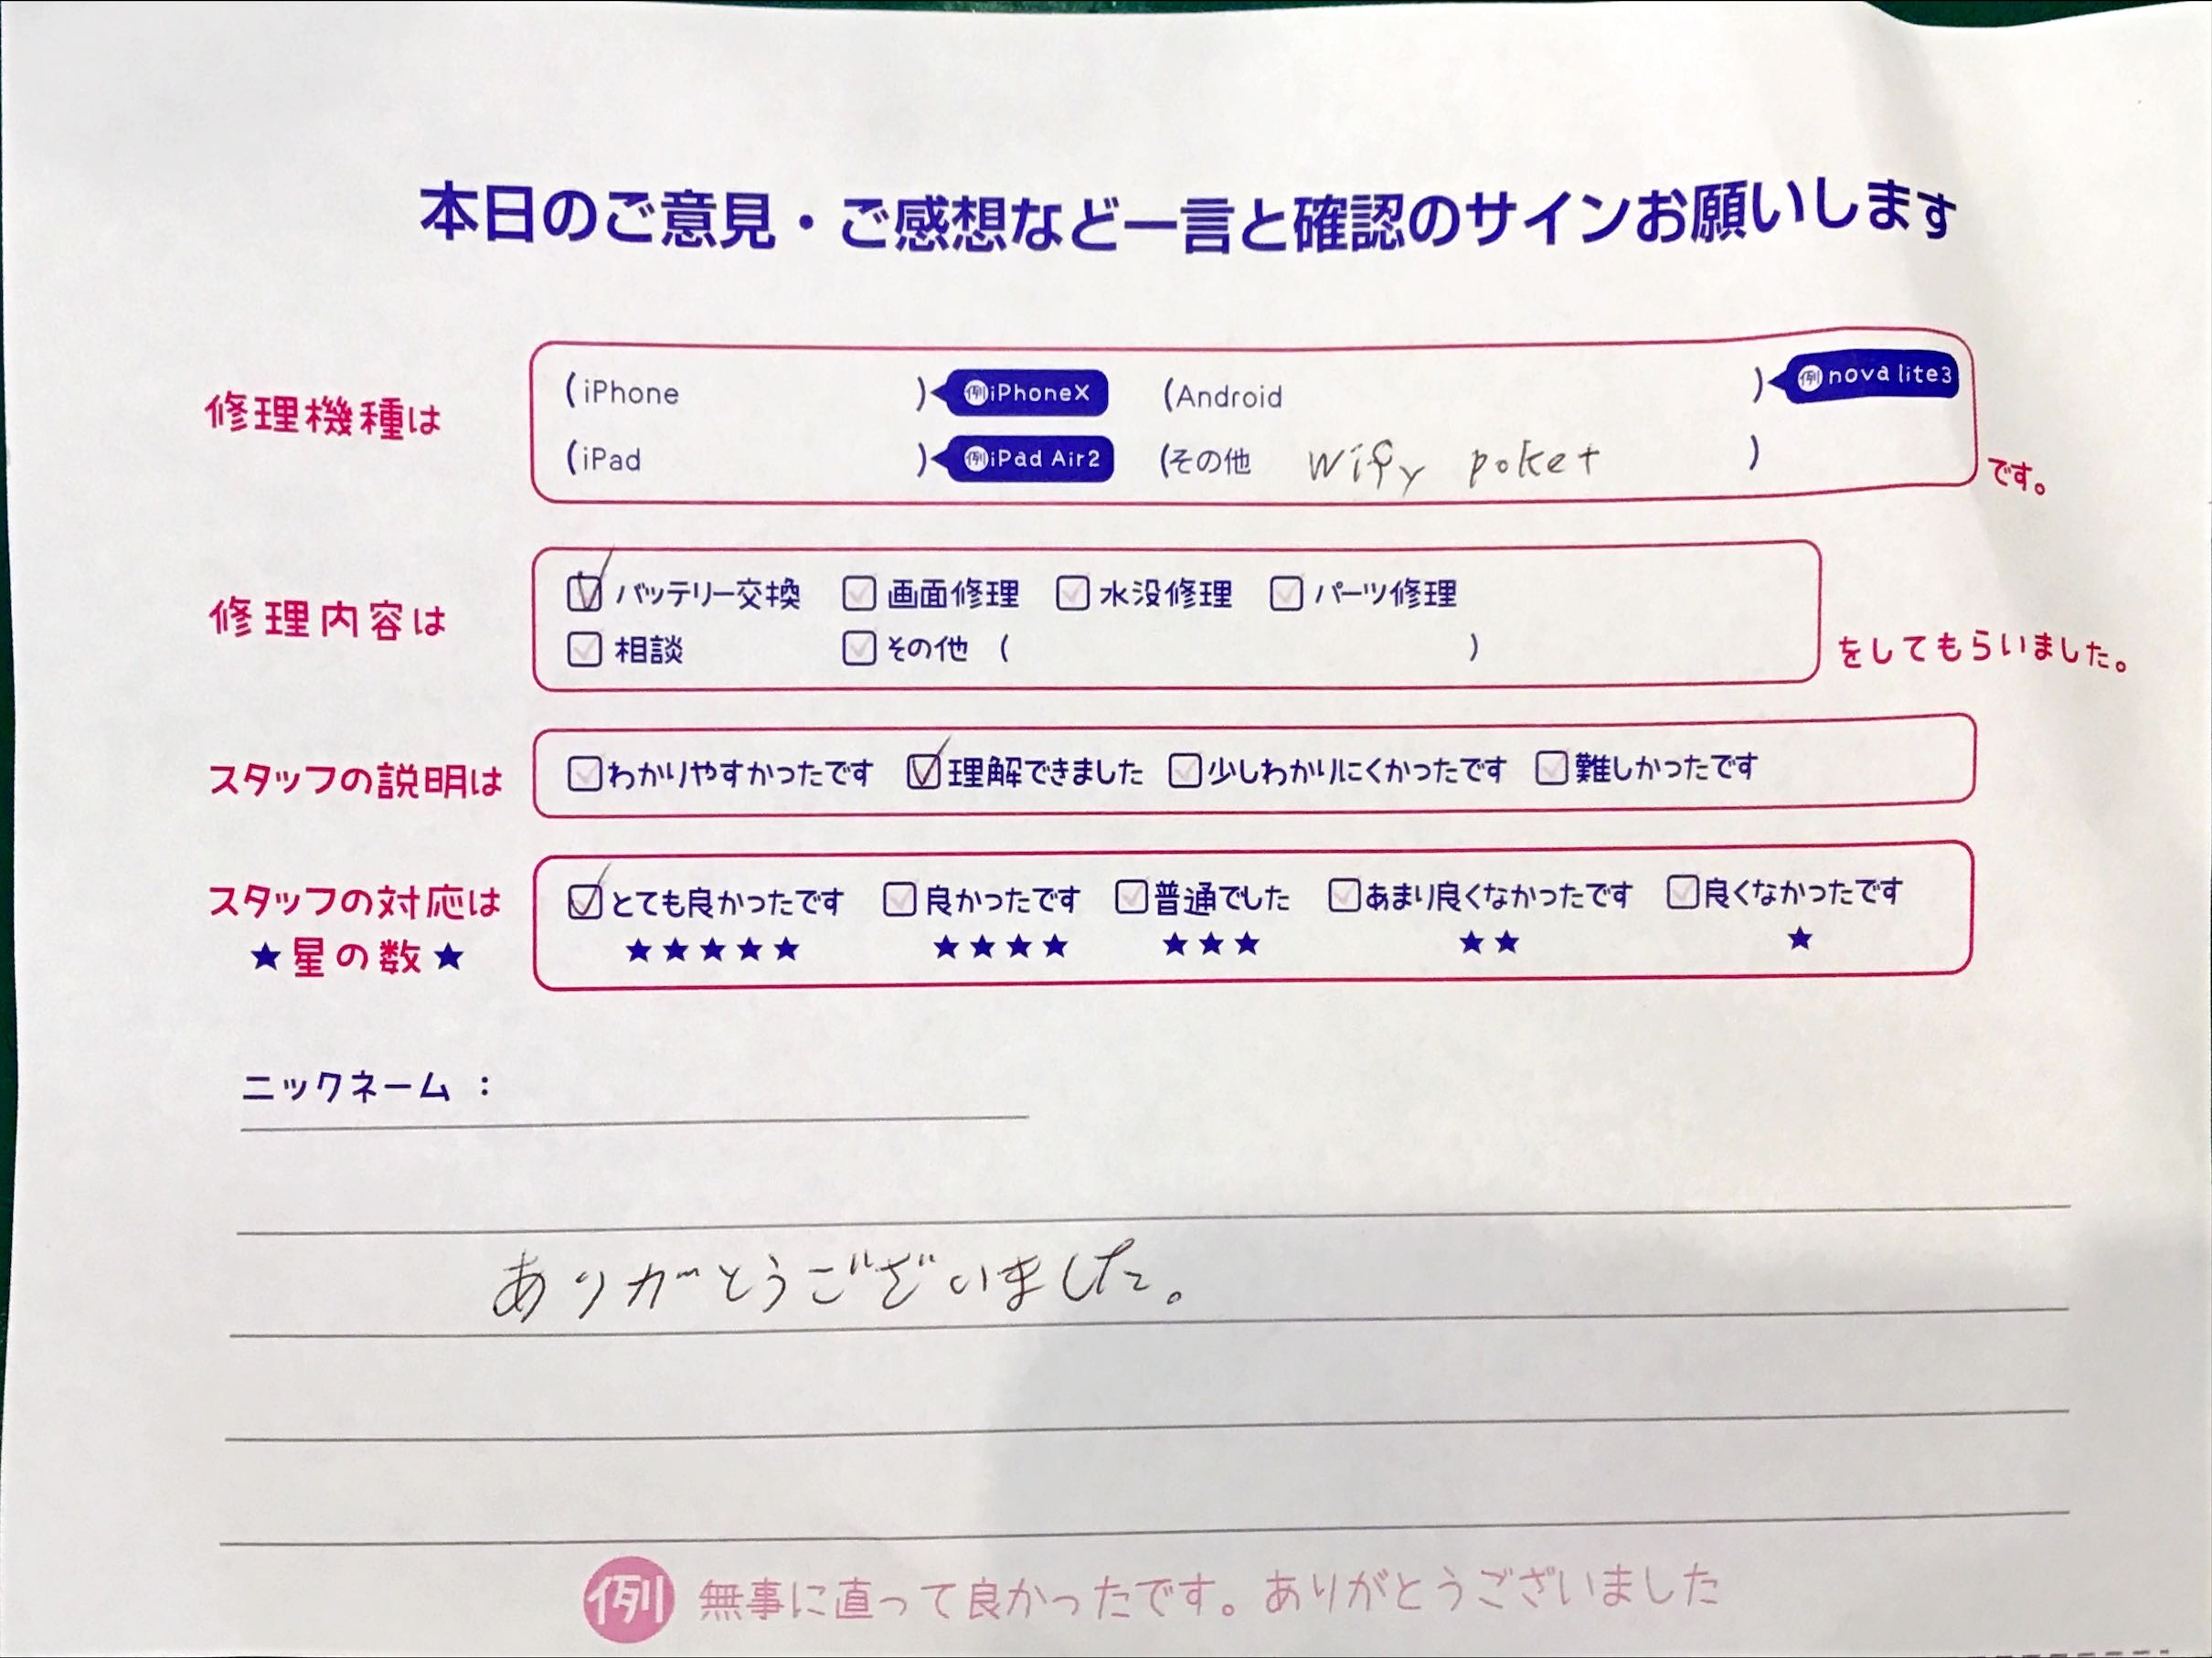 本日のご意見・ご感想など一言と確認のサインお願いします
修理機種は
(iPhone ) 例iPhoneX (Android ) 例nova lite3
(iPad ) 例iPad Air2 (その他 wify poket ) です。
修理内容は
バッテリー交換 画面修理 水没修理 パーツ修理
相談 その他 ( ) をしてもらいました。
スタッフの説明は わかりやすかったです 理解できました 少しわかりにくかったです 難しかったです
スタッフの対応は とても良かったです 良かったです 普通でした あまり良くなかったです 良くなかったです
★星の数★ ★★★★★ ★★★★ ★★★ ★★ ★
ニックネーム：
ありがとうございました。
例 無事に直って良かったです。ありがとうございました